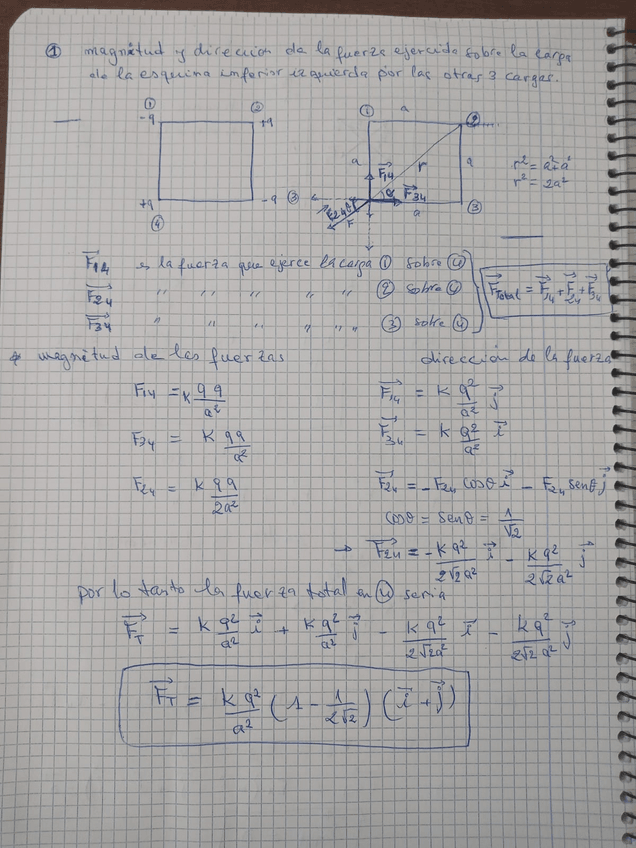 ① magnitud y dirección de la fuerza ejercida sobre la carga
de la esquina inferior izquierda por las otras 3 cargas.
① ②
-q +q
+q -q
④
① a ②
a r a
F14
α F34
③ a ③
F24
F
r² = a² + a²
r² = 2a²
F14 es la fuerza que ejerce la carga ① sobre ④
F24 " " " " " ② sobre ④
F34 " " " " " ③ sobre ④
FTotal = F14 + F24 + F34
* magnitud de les fuerzas dirección de la fuerza
F14 = K qq/a² F14 = K q²/a² j
F34 = K qq/a² F34 = K q²/a² i
F24 = K qq/2a² F24 = -F24 cosθ i - F24 senθ j
cosθ = senθ = 1/√2
→ F24 = -Kq²/2√2a² i - Kq²/2√2a² j
por lo tanto la fuerza total en ④ seria
FT = K q²/a² i + K q²/a² j - Kq²/2√2a² i - Kq²/2√2a² j
FT = Kq²/a² (1 - 1/2√2) (i + j)